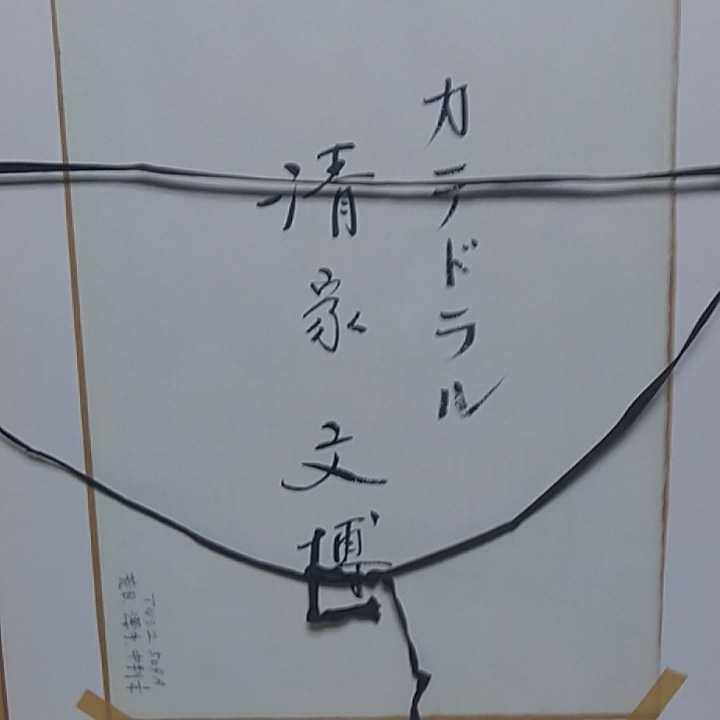 カテドラル
清家文博